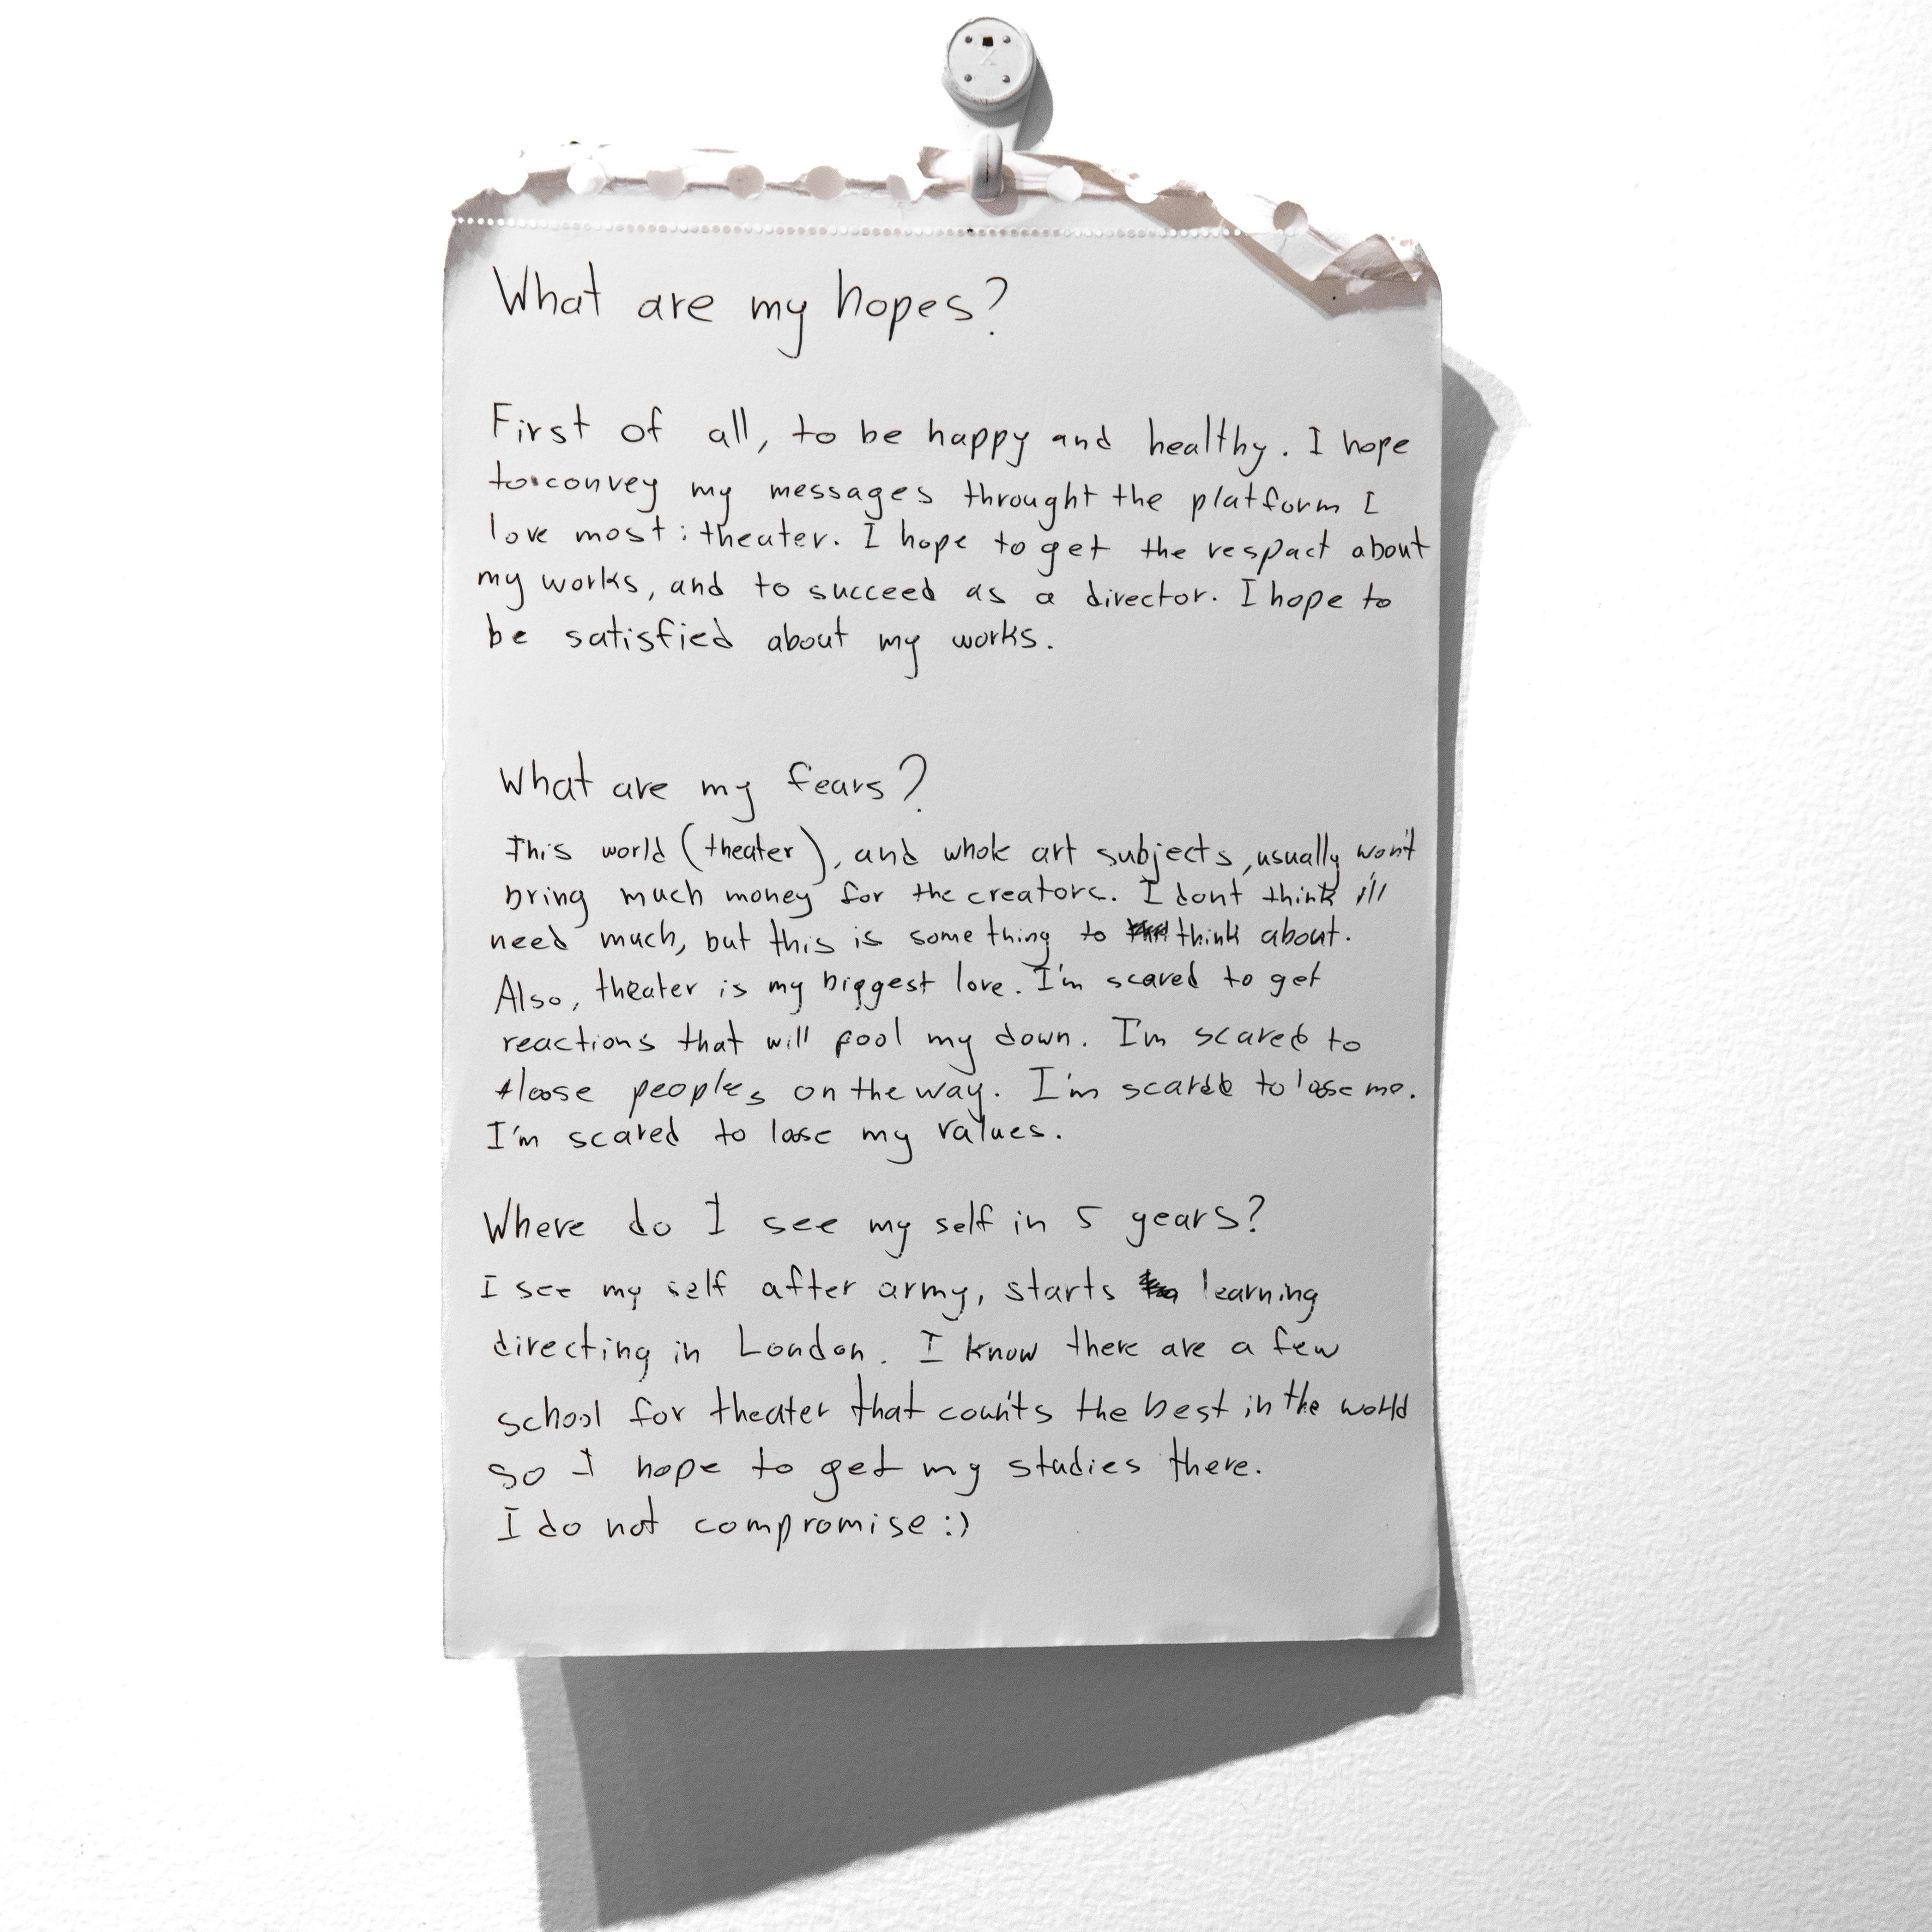 What are my hopes?
First of all, to be happy and healthy. I hope
to convey my messages throught the platform I
love most: theater. I hope to get the respact about
my works, and to succeed as a director. I hope to
be satisfied about my works.
What are my fears?
This world (theater), and whole art subjects, usually won't
bring much money for the creators. I dont think i'll
need much, but this is something to think about.
Also, theater is my biggest love. I'm scared to get
reactions that will pool my down. I'm scared to
loose peoples on the way. I'm scared to lose me.
I'm scared to lose my values.
Where do I see my self in 5 years?
I see my self after army, starts learning
directing in London. I know there are a few
school for theater that counts the best in the world
so I hope to get my studies there.
I do not compromise :)